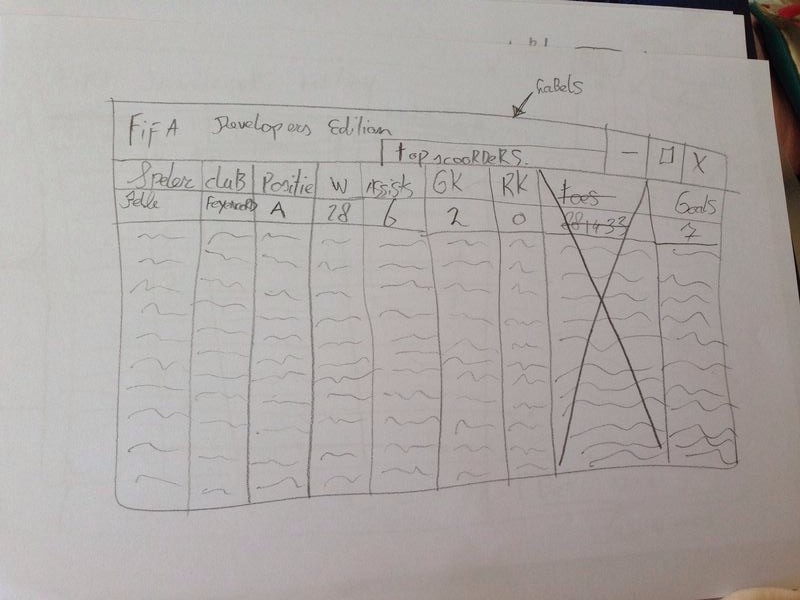 Labels
FiFA Developers Edition
topscooRDeRS.
— □ X
Speler cluB Positie W Assists GK RK toes Goals
Pelle Feyenoord A 28 6 2 0 281433 7